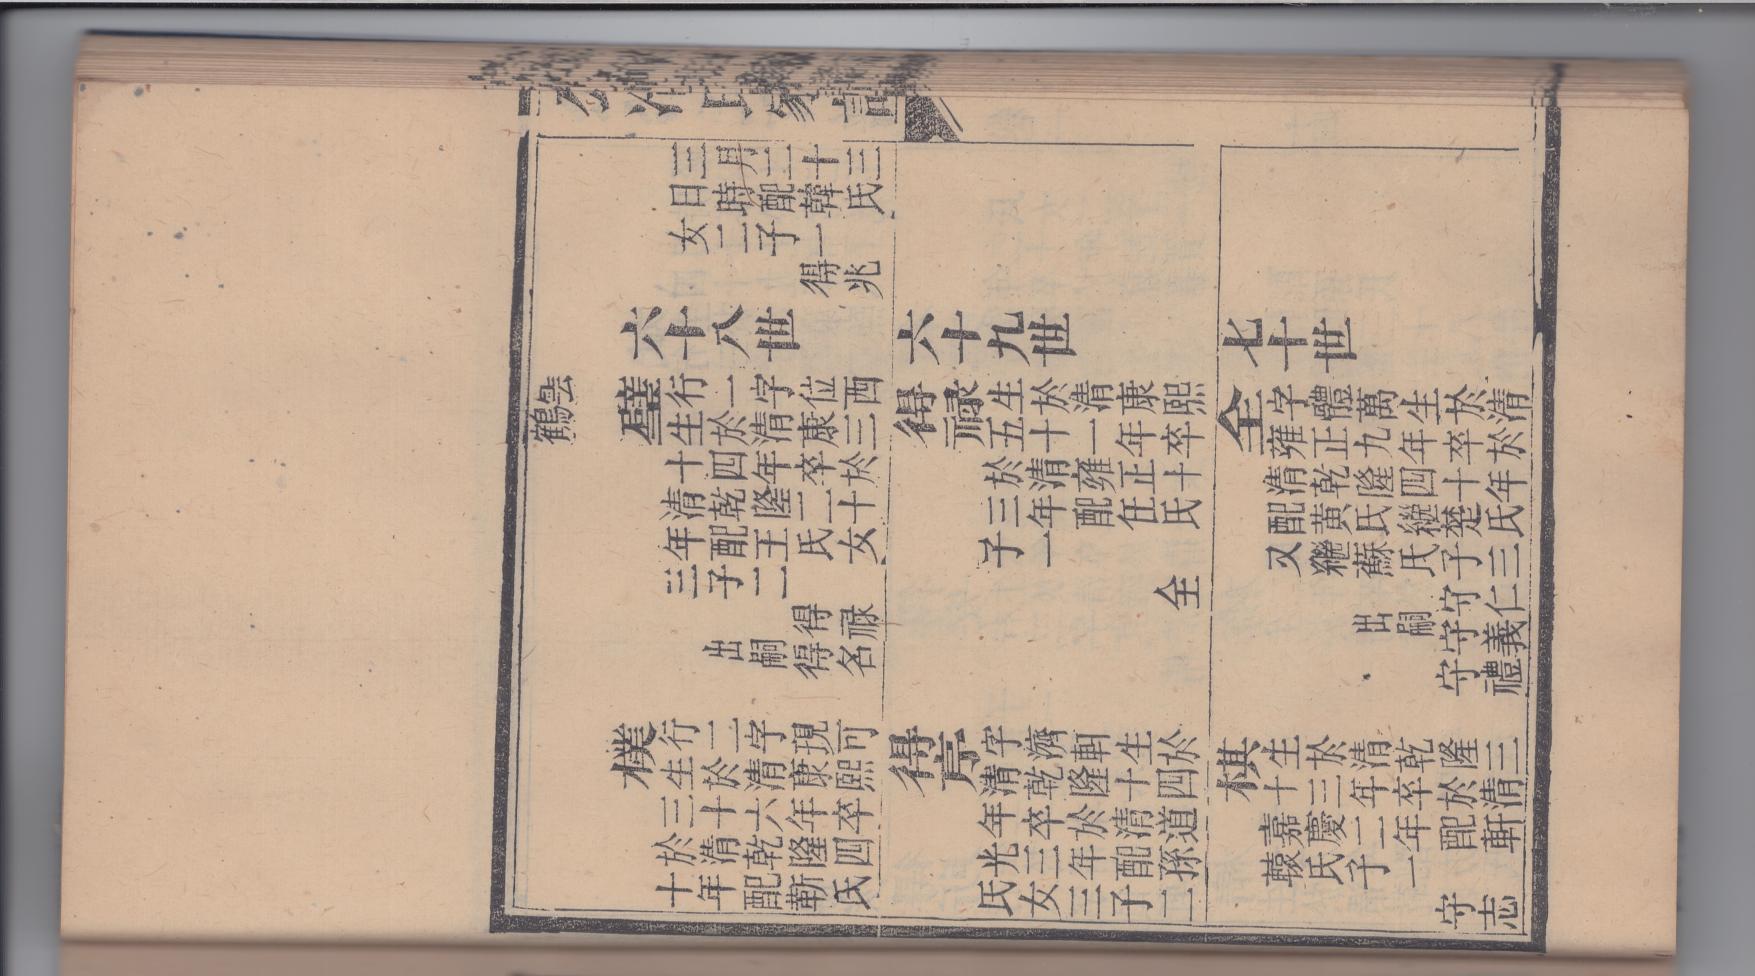 三月二十三
日時配韓氏
女二子一
得兆
六十八世
雲鶴
壁
行一字位西
生於清康三
十四年卒於
清乾隆二十
年配王氏女
三子二
得禄
出嗣得名
僕
行二字現可
生於清康熙
三十六年卒
於清乾隆四
十年配靳氏
六十九世
得禄
生於清康熙
五十一年卒
於清雍正十
三年配任氏
子一
全
得
字濟軒生於
清乾隆十四
年卒於清道
光三年配孫
氏女三子一
七十世
全
字體萬生於清
雍正九年卒於
清乾隆四十年
配黃氏繼楚氏
又繼蘇氏子三
守仁
出嗣守義
守禮
棋
生於清乾隆三
十三年卒於清
嘉慶二年配軒
轅氏子一
守志